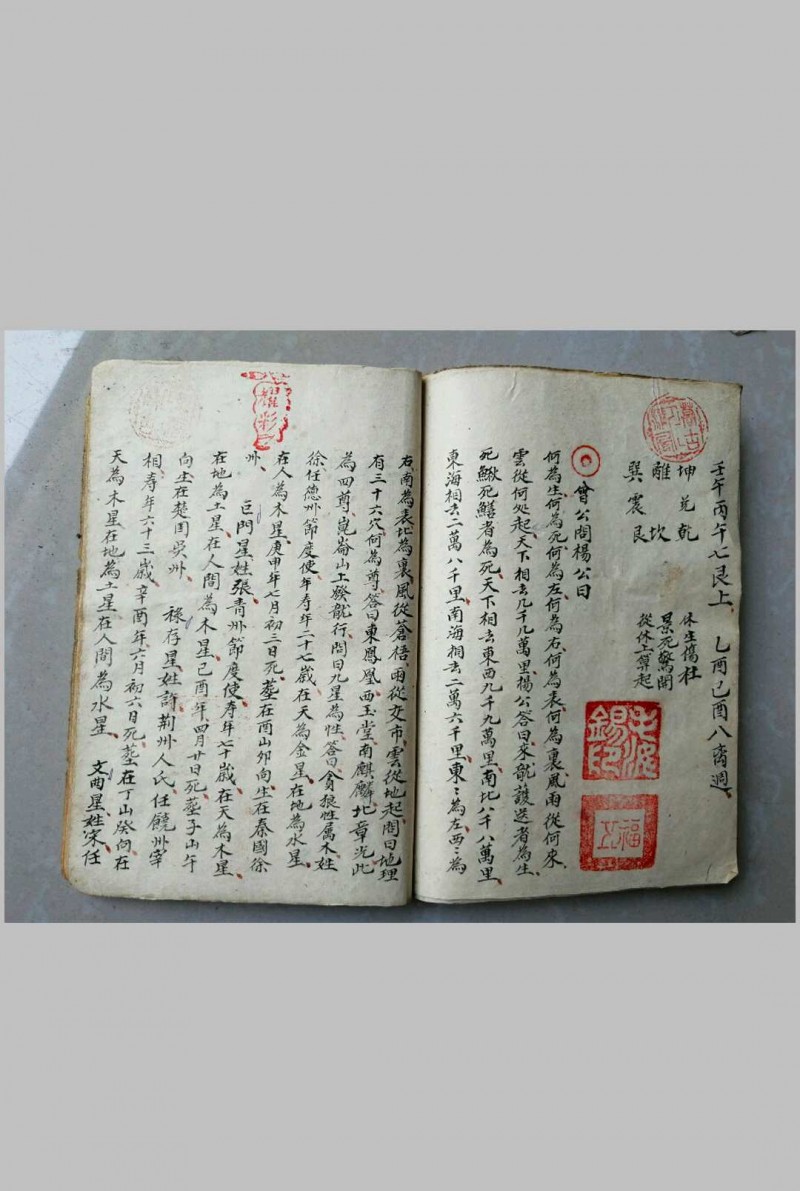 壬午丙午七艮上、乙酉己酉八离週、
坤兌乾
離 坎
巽震艮
休生傷杜
景死驚開
從休上算起
曾公問楊公曰
何為生、何為死、何為左、何為右、何為表、何為裏、風雨從何來、
雲從何处起、天下相去几千几萬里、楊公答曰、來龍護送者為生、
死鰍死鱔者為死、天下相去東西九千九萬里、南北八千八萬里、
東海相去二萬八千里、南海相去二萬六千里、東〻為左、西〻為
右、南為表、北為裏、風從蒼梧、雨從交市、雲從地起、問曰地理
有三十六穴、何為尊、答曰東鳳凰西玉堂南麒麟北章光、此
為四尊、崑崙山上發龍行、問曰九星為性、答曰、貪狼性屬木、姓
徐、任德州節度使、年寿年二十七歲、在天為金星、在地為水星、
在人為木星、庚申年七月初三日死、葬在酉山夘向、生在秦國徐
州、 巨門星、姓張、青州節度使、寿年七十歲、在天為木星、
在地為土星、在人問為木星、己酉年四月廿日死、葬子山午
向、生在楚国吳州、 祿存星、姓許、荆州人氏、任饒州宰
相、寿年六十三歲、辛酉年六月初六日死、葬在丁山癸向、在
天為木星、在地為土星、在人問為水星、 文曲星、姓宋、任
耀彩
福